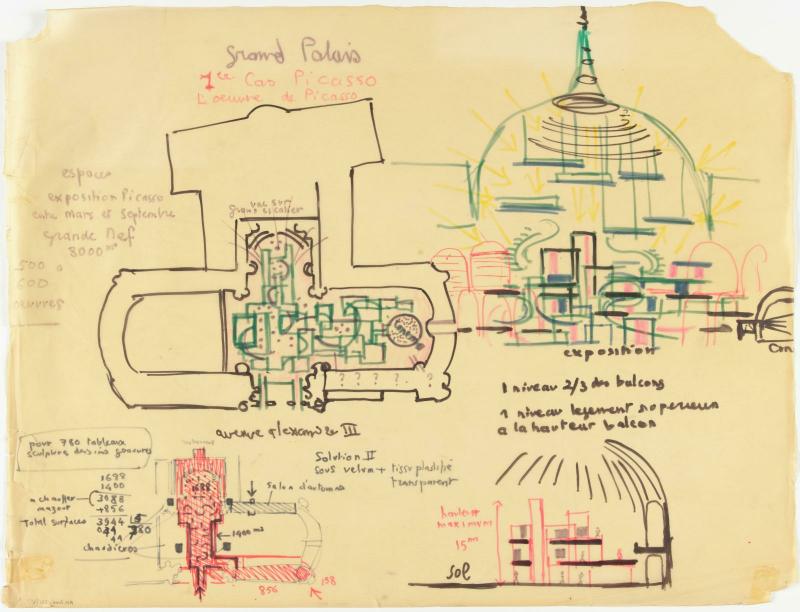 Grand Palais
1er Cas Picasso
L'oeuvre de Picasso
espace
exposition Picasso
entre mars et septembre
grande Nef
8000 m²
500 a
600
oeuvres
vue sur
grand escalier
cinéma
? ? ? ? ?
avenue Alexandre III
exposition
1 niveau 2/3 des balcons
1 niveau legement superieur
a la hauteur balcon
pour 780 tableaux
sculpture dessins gravures
1688
1400
a chauffer
3088
mazout
+856
Total surfaces
3944
chaudieres
Solution II
sous velum + tissu plastifié
transparent
Salon d'automne
1688
1400 m2
856
158
hauteur
maximum
15m
sol